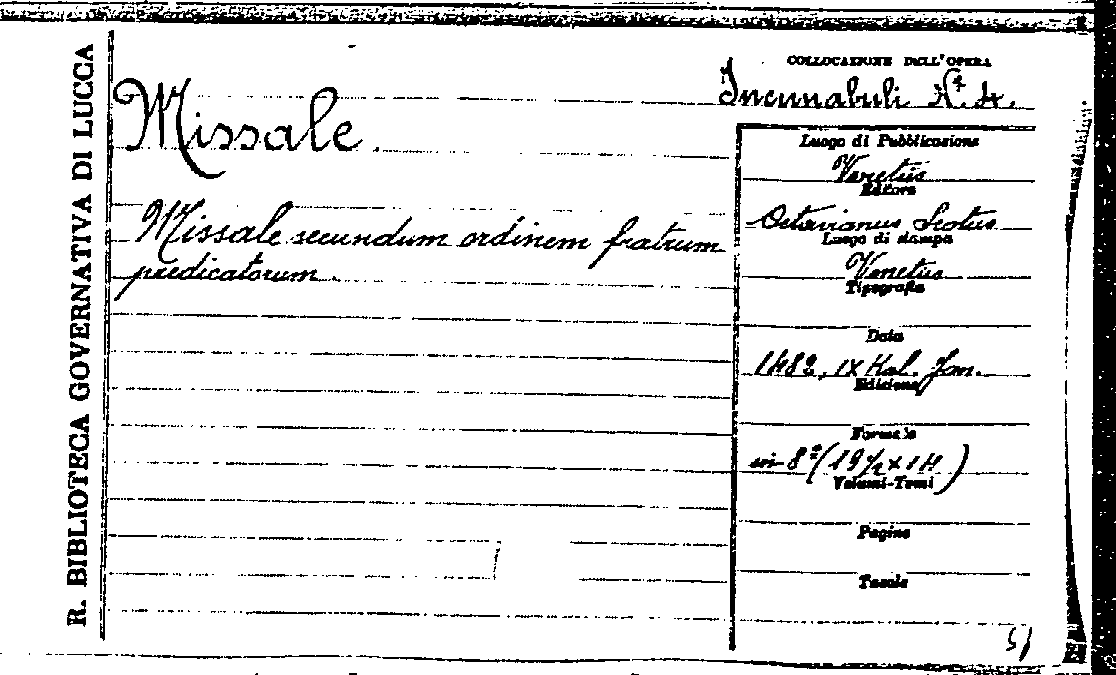 R. BIBLIOTECA GOVERNATIVA DI LUCCA
Missale.
Missale secundum ordinem fratrum
predicatorum.
COLLOCAZIONE DELL'OPERA
Incunabuli N. 4.
Luogo di Pubblicazione
Venetiis
Editore
Octavianus Scotus
Luogo di stampa
Venetiis
Tipografia
Data
1482, IX Kal. Jan.
Edizione
Formato
in 8º (19½ x 14)
Volumi-Tomi
Pagine
Tavole